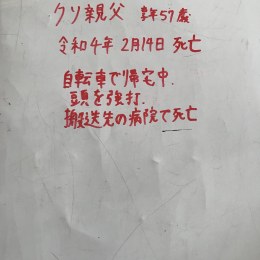 クソ親父 享年57歳
令和4年 2月14日 死亡
自転車で帰宅中.
頭を強打.
搬送先の病院で死亡